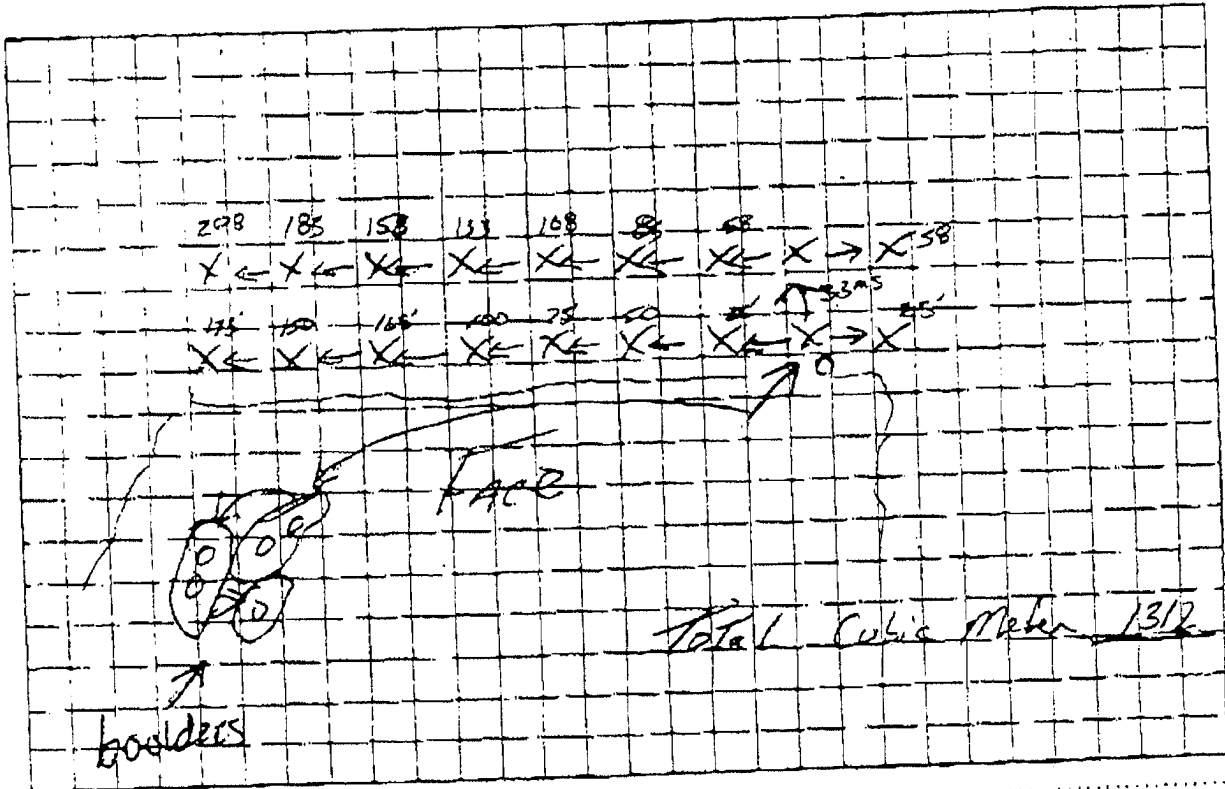 208 185 158 133 108 83 58
X ← X ← X ← X ← X ← X ← X ← X → X 58
33ms
175 150 100 75 50 25
X ← X ← X ← X ← X ← X ← X ← X → X
0
FACE
Total Cubic Meter 1312
boulders